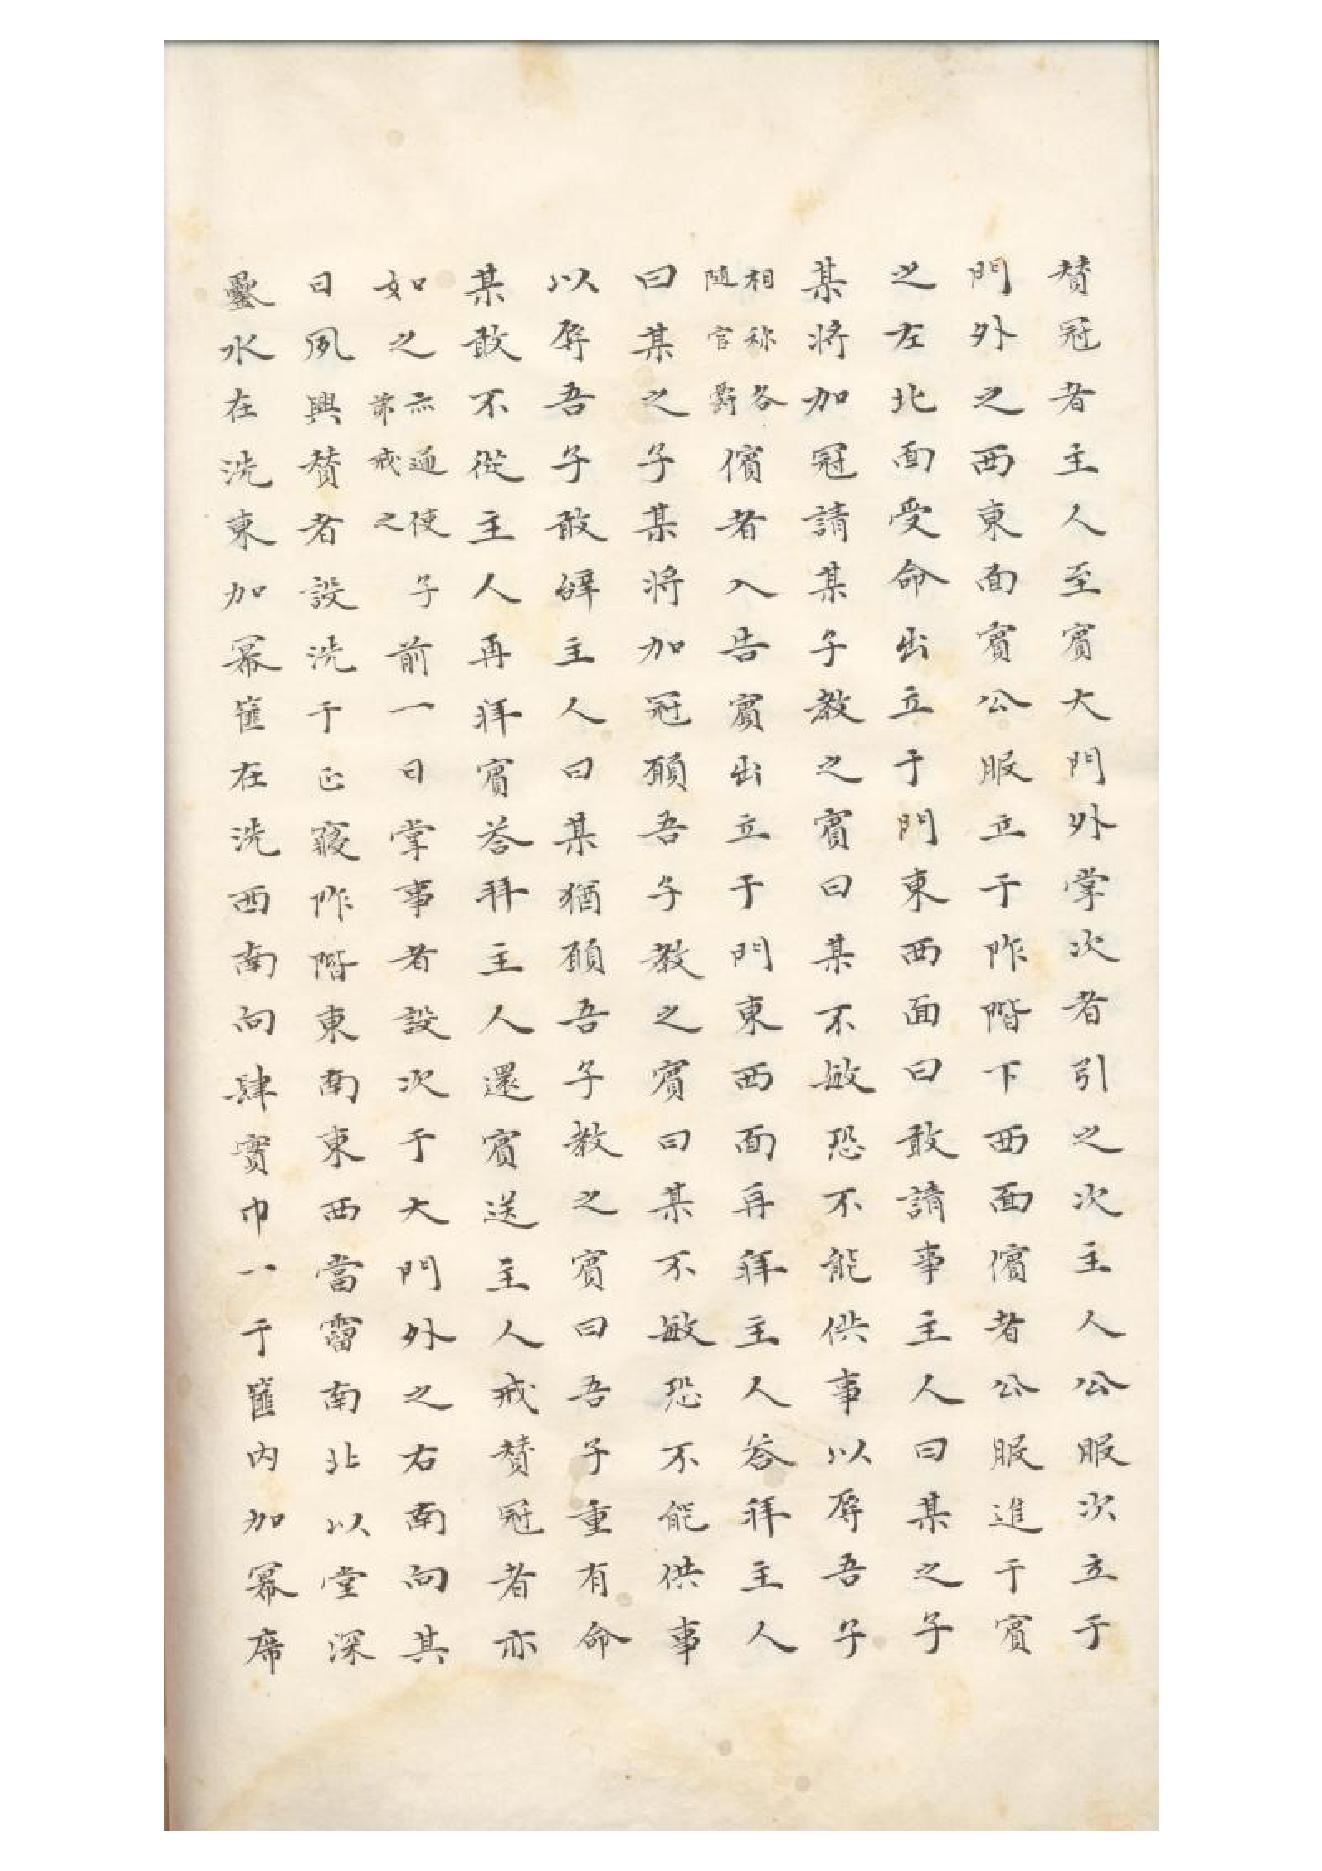 賛冠者主人至賓大門外掌次者引之次主人公服次立于
門外之西東面賓公服立于阼階下西面儐者公服進于賓
之左北面受命出立于門東西面曰敢請事主人曰某之子
某將加冠請某子教之賓曰某不敏恐不能供事以辱吾子
相称各
隨官爵
儐者入告賓出立于門東西面再拜主人答拜主人
曰某之子某將加冠願吾子教之賓曰某不敏恐不能供事
以辱吾子敢辭主人曰某猶願吾子教之賓曰吾子重有命
某敢不從主人再拜賓答拜主人還賓送主人戒賛冠者亦
如之
亦通使子
弟戒之
前一日掌事者設次于大門外之右南向其
日夙興賛者設洗于正寢阼階東南東西當霤南北以堂深
罍水在洗東加冪篚在洗西南向肆實巾一于篚内加冪席